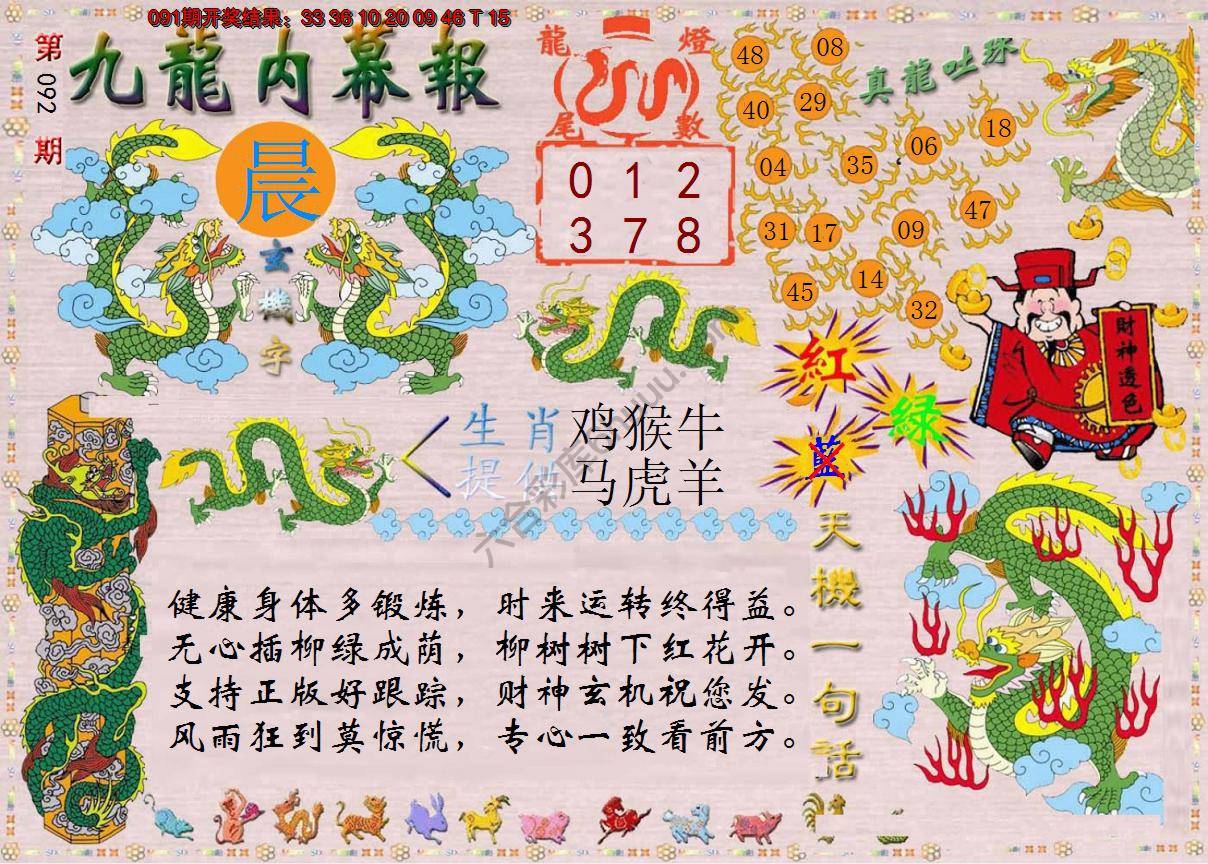 091期开奖结果：33 36 10 20 09 46 T 15
第092期
九龍内幕報
晨
玄機字
龍燈
尾數
0 1 2
3 7 8
真龍吐珠
48 08
40 29
04 35 06 18
31 17 09 47
45 14 32
紅
綠
藍
財神透色
生肖 鸡猴牛
提供 马虎羊
天機一句話
健康身体多锻炼，时来运转终得益。
无心插柳绿成荫，柳树树下红花开。
支持正版好跟踪，财神玄机祝您发。
风雨狂到莫惊慌，专心一致看前方。